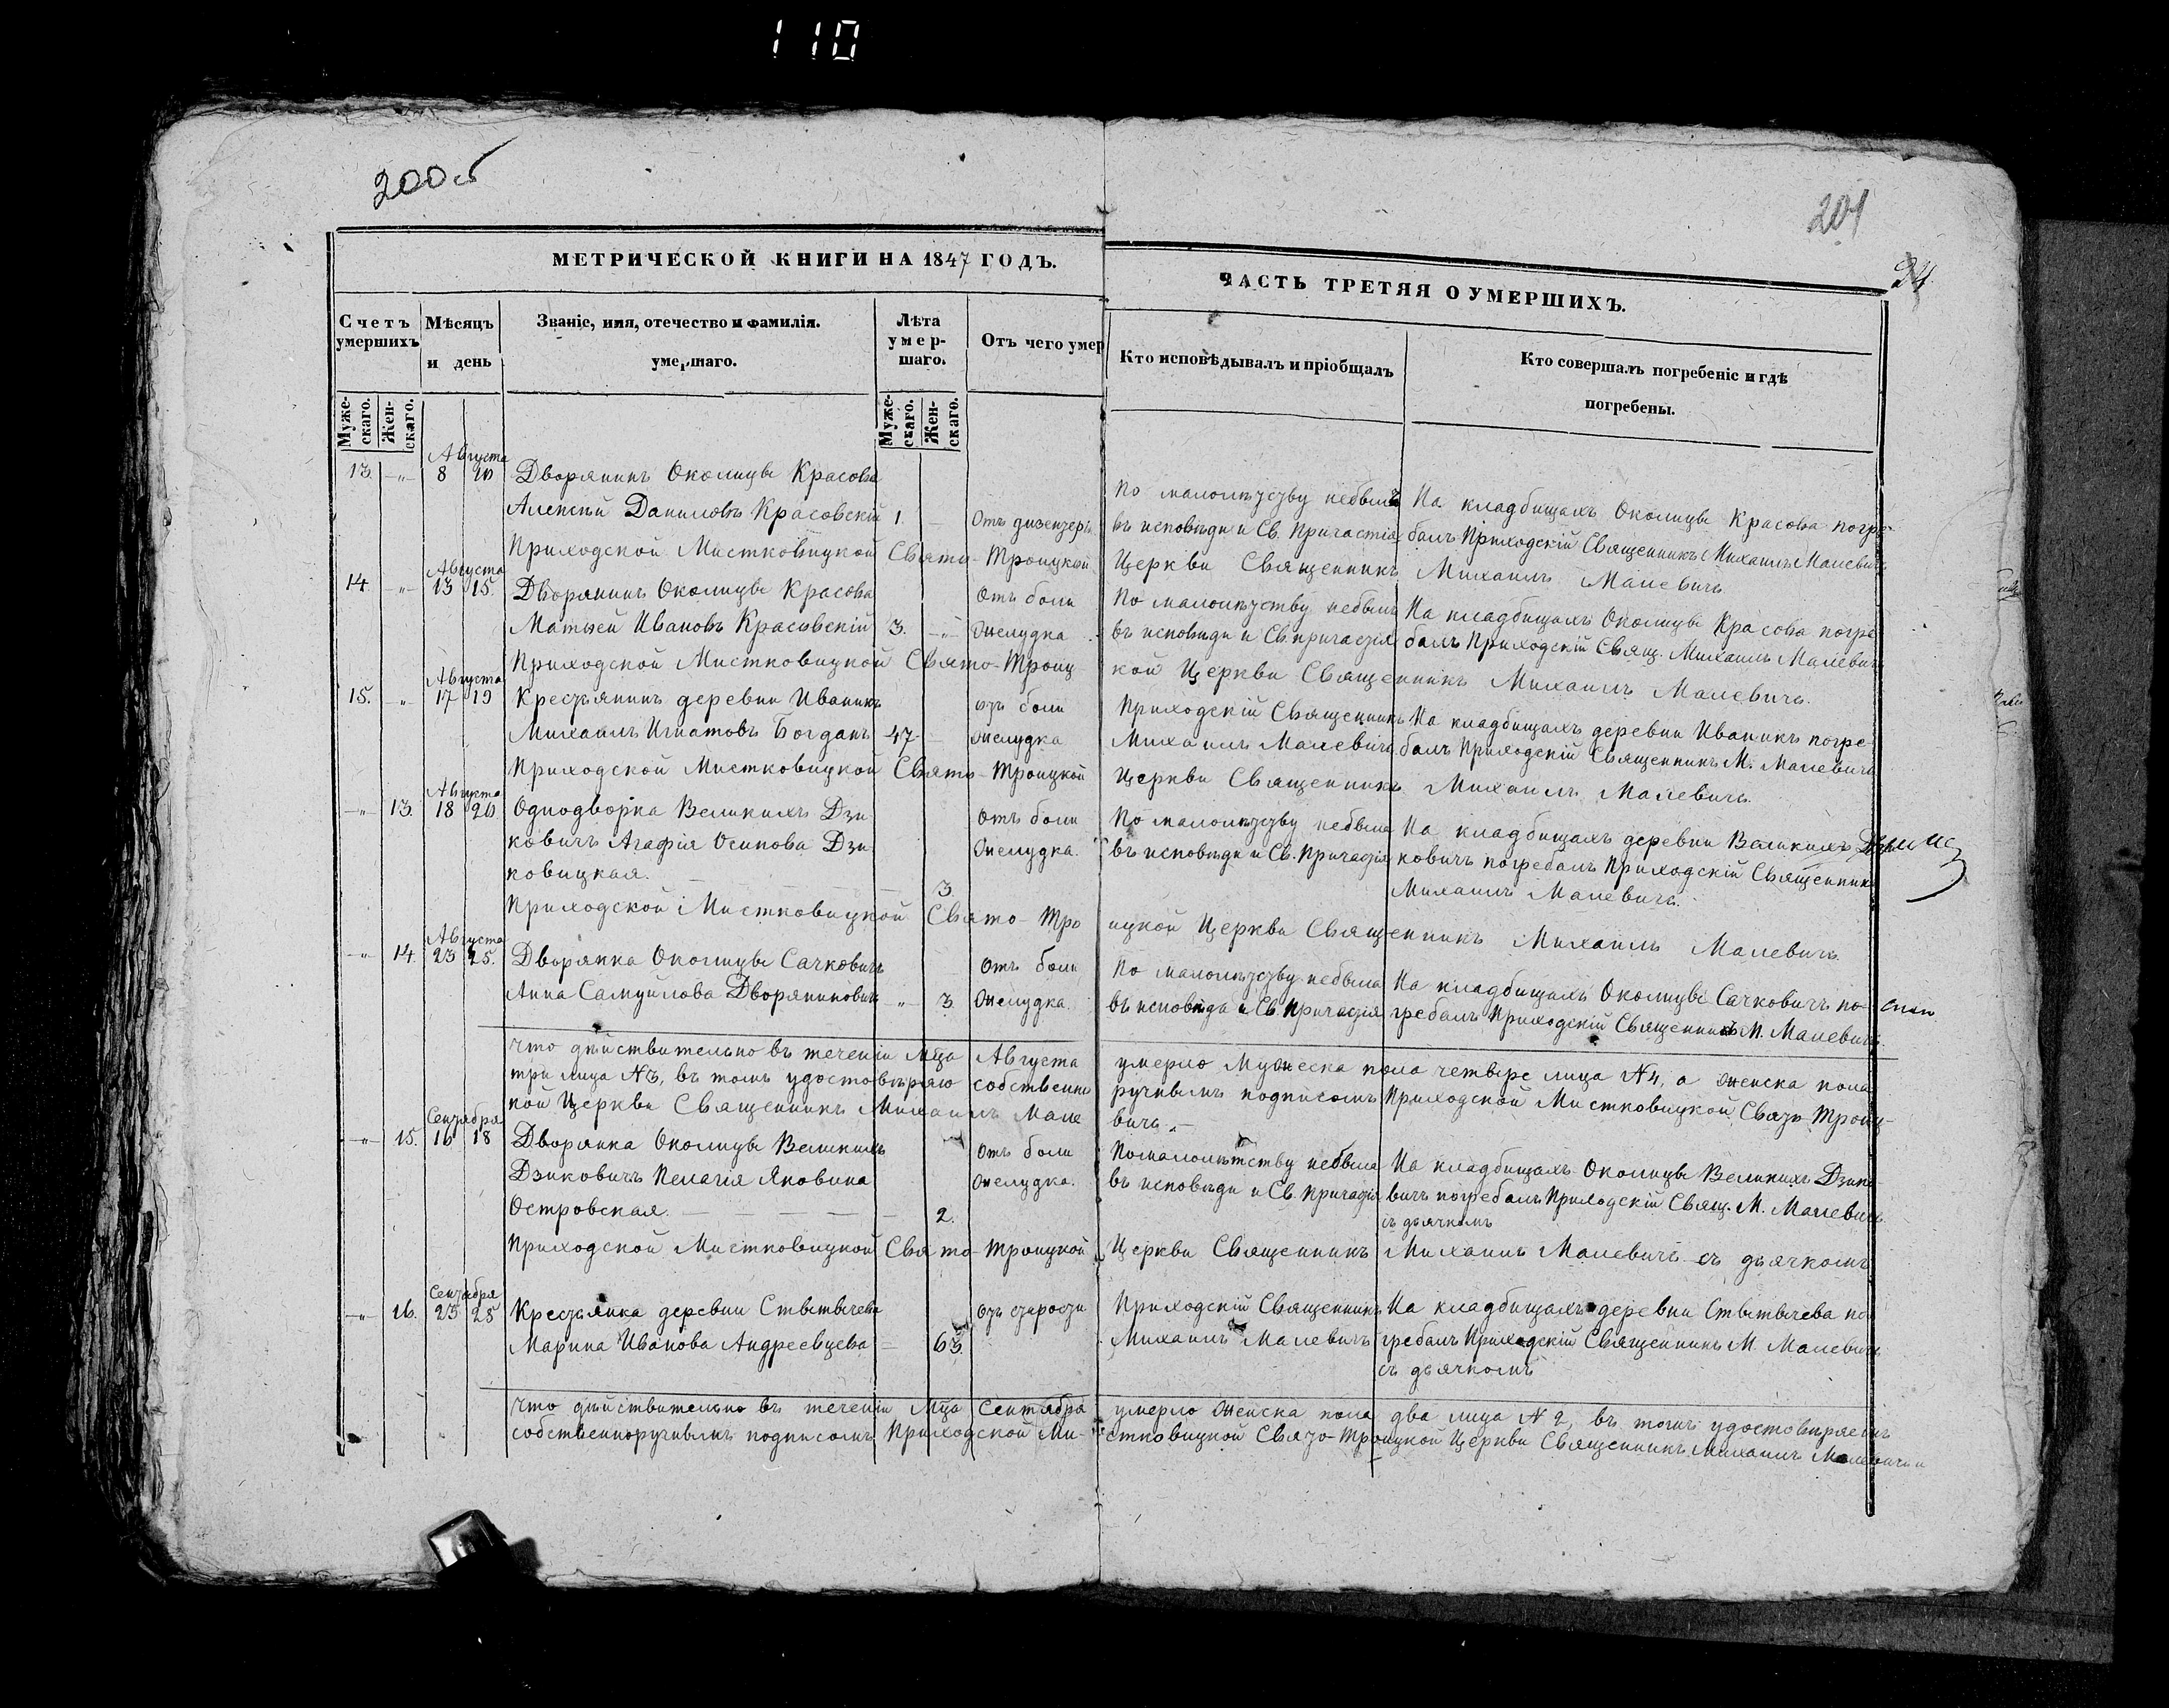 110
200об
201
24
МЕТРИЧЕСКОЙ КНИГИ НА 1847 ГОДЪ.
ЧАСТЬ ТРЕТЯЯ О УМЕРШИХЪ.
Счетъ умершихъ
Мѣсяцъ и день
Званіе, имя, отечество и фамилія.
умершаго.
Лѣта умер-
шаго.
Отъ чего умер
Кто исповѣдывалъ и пріобщалъ
Кто совершалъ погребеніе и гдѣ
погребены.
Муже-
скаго.
Жен-
скаго.
Муже-
скаго.
Жен-
скаго.
Августа
13. -"- 8 10 Дворянинъ Околицы Красова
Алексѣй Даниловъ Красовскій 1. Отъ дизентеріи По малолѣтству небылъ На кладбищахъ Околицы Красова погре-
въ исповѣди и Св. Причастія балъ Приходскій Священникъ Михаилъ Малевичъ
Приходской Мистковицкой Свято-Троицкой Церкви Священникъ Михаилъ Малевичъ
Августа
14. -"- 13 15. Дворянинъ Околицы Красова Отъ боли По малолѣтству небылъ На кладбищахъ Околицы Красова погре
Матѳей Ивановъ Красовскій 3. -"- Желудка въ исповѣди и Св. причастія балъ Приходскій Свящ. Михаилъ Малевичъ
Приходской Мистковицкой Свято-Троиц- кой Церкви Священникъ Михаилъ Малевичъ.
Августа
15. " 17 19 Крестьянинъ деревни Иваникъ отъ боли Приходскій Священникъ На кладбищахъ деревни Иваникъ погре-
Михаилъ Игнатовъ Богданъ 47 желудка Михаилъ Малевичъ балъ Приходскій Священникъ М. Малевичъ
Приходской Мистковицкой Свято-Троицкой Церкви Священникъ Михаилъ Малевичъ.
Августа
-"- 13. 18 20 Однодворка Великихъ Дзи- Отъ боли По малолѣтству небыла На кладбищахъ деревни Великихъ
ковичъ Агафія Осипова Дзи- Желудка. въ исповѣди и Св. Причастія ковичъ погребалъ Приходскій Священникъ
ковицкая. 3. Михаилъ Малевичъ.
Приходской Мистковицкой Свято-Тро ицкой Церкви Священникъ Михаилъ Малевичъ
Августа
-"- 14. 23 25. Дворянка Околицы Сачковичъ Отъ боли По малолѣтству небыла На кладбищахъ Околицы Сачковичъ по-
Анна Самуилова Дворяниновичъ -"- 3 Желудка. въ исповѣди и Св. Причастія гребалъ Приходскій Священникъ М. Малевичъ.
Что дѣйствительно въ теченіи Мца Августа умерло Мужеска пола четверо лица №4, а женска пола
три лица №3, въ томъ удостовѣряю собственно ручнымъ подписомъ Приходской Мистковицкой Свято Троиц-
кой Церкви Священникъ Михаилъ Мале вичъ.-
Сентября
-"- 15. 16 18 Дворянка Околицы Великихъ Отъ боли По малолѣтству небыла На кладбищахъ Околицы Великихъ Дзико
Дзиковичъ Пелагія Яковина Желудка. въ исповѣди и Св. Причастія вичъ погребалъ Приходскій Свящ. М. Малевичъ
Островская. 2. съ дьячкомъ
Приходской Мистковицкой Свято-Троицкой Церкви Священникъ Михаилъ Малевичъ съ дьячкомъ
Сентября
-"- 16. 23 25 Крестьянка деревни Стытычева отъ старости Приходскій Священникъ На кладбищахъ деревни Стытычева по
Марина Иванова Андреевцева = 63 Михаилъ Малевичъ гребалъ Приходскій Священникъ М. Малевичъ
съ дьячкомъ
Что дѣйствительно въ теченіи Мца Сентября умерло женска пола два лица №2, въ томъ удостовѣряемъ
собственноручнымъ подписомъ Приходской Ми- стковицкой Свято-Троицкой Церкви Священникъ Михаилъ Малевичъ и